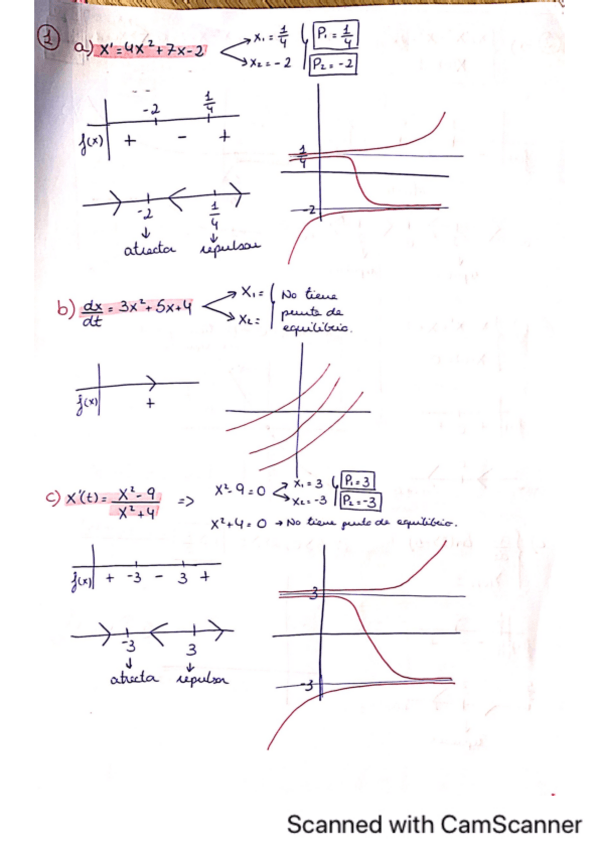 1 a) x' = 4x² + 7x - 2 x₁ = 1/4 P₁ = 1/4
x₂ = -2 P₂ = -2
-2 1/4
f(x) + - +
1/4
-2
-2 1/4
↓ ↓
atractor repulsor
b) dx/dt = 3x² + 5x + 4 x₁ = No tiene
x₂ = punto de
equilibrio.
f(x) +
c) x'(t) = x² - 9 / x² + 4 => x² - 9 = 0 x₁ = 3 P₁ = 3
x₂ = -3 P₂ = -3
x² + 4 = 0 → No tiene punto de equilibrio.
f(x) + -3 - 3 +
3
-3
-3 3
↓ ↓
atractor repulsor
Scanned with CamScanner